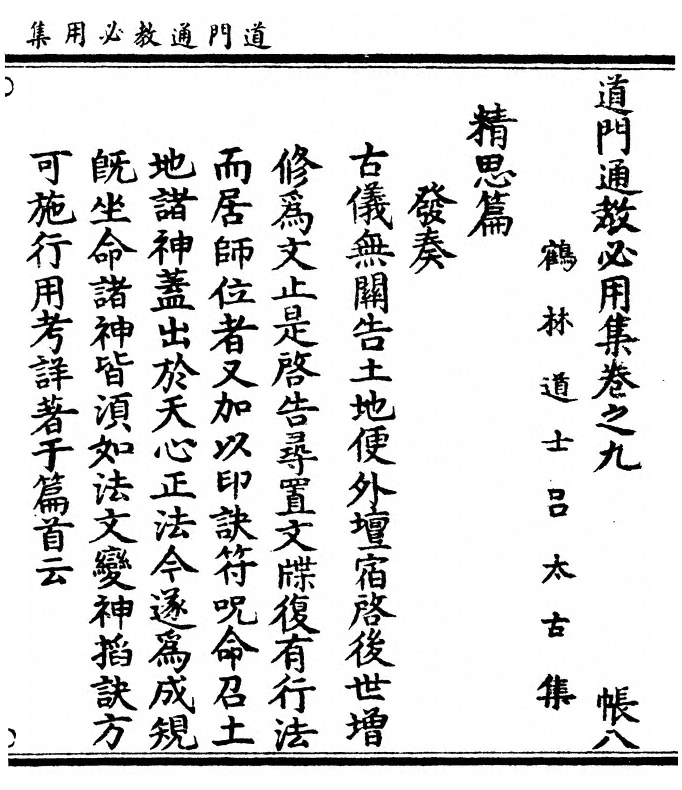 道門通教必用集
道門通教必用集卷之九 帳八
鶴林道士呂太古集
精思篇
發奏
古儀無關告土地便外壇宿啓後世增
修爲文止是啓告尋置文牒復有行法
而居師位者又加以印訣符呪命召土
地諸神蓋出於天心正法今遂爲成䂓
旣坐命諸神皆湏如法文變神掐訣方
可施行用考詳著于篇首云